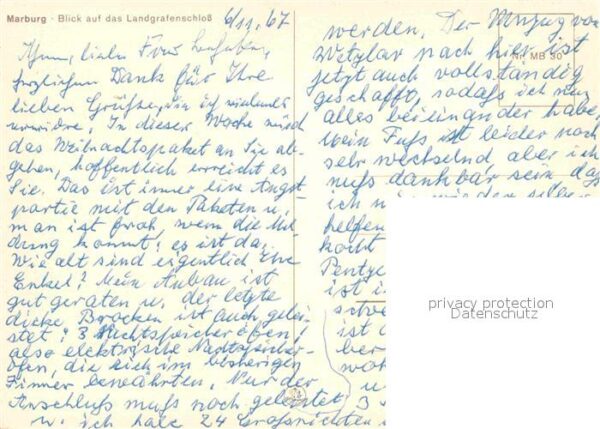 Marburg · Blick auf das Landgrafenschloß
6/11.67
Ihnen, liebe Frau
herzlichen Dank für Ihre
lieben Grüsse, die ich vielmals
erwidre. In dieser Woche wird
das Weihnachtspaket an Sie ab-
gehen, hoffentlich erreicht es
Sie. Das ist immer eine Angst-
partie mit den Paketen u.
man ist froh, wenn die Mel-
dung kommt: es ist da.
Wie alt sind eigentlich Ihre
Enkel? Mein Anbau ist
gut geraten u. der letzte
dicke Brocken ist auch gelei-
stet: 3 Nachtspeicheröfen!
also elektrische Nachtspeicher-
öfen, die sich im bisherigen
Zimmer bewährten. Nur der
Anschluß muß noch geleistet
u. ich habe 24
werden. Der Umzug von
Wetzlar nach hier ist
jetzt auch vollständig
geschafft, sodaß ich nun
alles beieinander habe.
Mein Fuß ist leider noch
sehr wechselnd aber ich
muß dankbar sein, daß
ich
helfen
kocht
ist i
ist d
ber
u
3
Nr. MB 30
privacy protection
Datenschutz